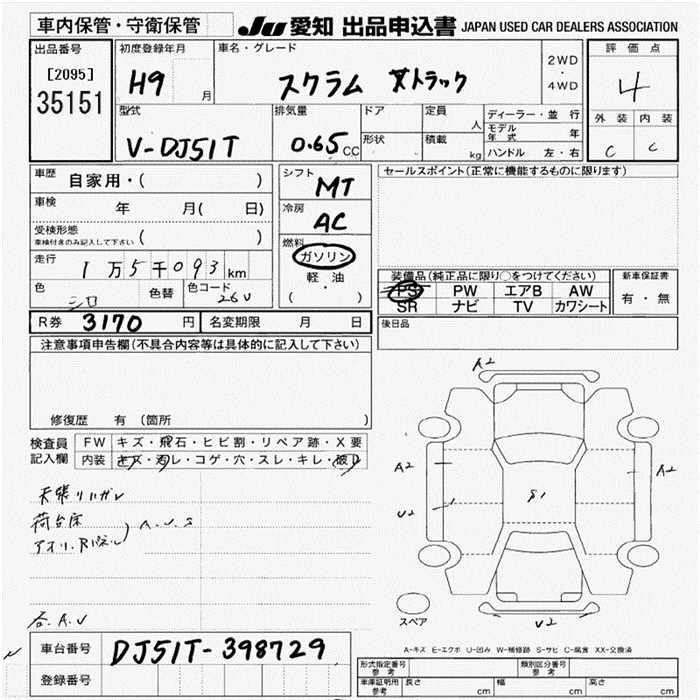 車内保管・守衛保管 JU 愛知 出品申込書 JAPAN USED CAR DEALERS ASSOCIATION
出品番号 初度登録年月 車名・グレード 評価点
[2095] H9 月 スクラム トラック 2WD・4WD 4
35151
型式 排気量 ドア 定員 人 ディーラー・並行 外装 内装
V-DJ51T 0.65 CC 形状 積載 kg モデル年式 年 C C
ハンドル 左・右
車歴 自家用・( ) シフト MT セールスポイント(正常に機能するものに限ります)
車検 年 月( 日) 冷房 AC
受検形態 車検付きのみ記入して下さい ( ) 燃料 ガソリン
走行 1万5千093km 軽・油 装備品(純正品に限り○をつけてください) 新車保証書
色 シロ 色替 色コード 26U ( ・ ) PS PW エアB AW 有・無
SR ナビ TV カワシート
R券 3170 円 名変期限 月 日 後日品
注意事項申告欄(不具合内容等は具体的に記入して下さい)
修復歴 有 (箇所 )
検査員 FW キズ・飛石・ヒビ割・リペア跡・X要
記入欄 内装 キズ・汚レ・コゲ・穴・スレ・キレ・破レ
A2
A2 S1 A2
U2
天張リハガレ
荷台床
A.U.S
各A.U
U2
スペア
A-キズ E-エクボ U-凹み W-補修跡 S-サビ C-腐食 XX-交換済
車台番号 DJ51T-398729 形式指定番号 参考 類別区分番号 参考
登録番号 車庫証明用 参考 長さ cm 幅 cm 高さ cm